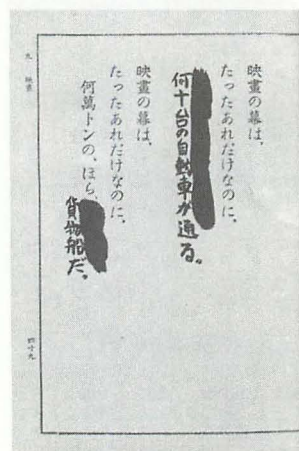 映畫の幕は、
たったあれだけなのに、
何十台の自動車が通る。
映畫の幕は、
たったあれだけなのに、
何萬トンの、ほら、
貨物船だ。
九 映畫
四十九